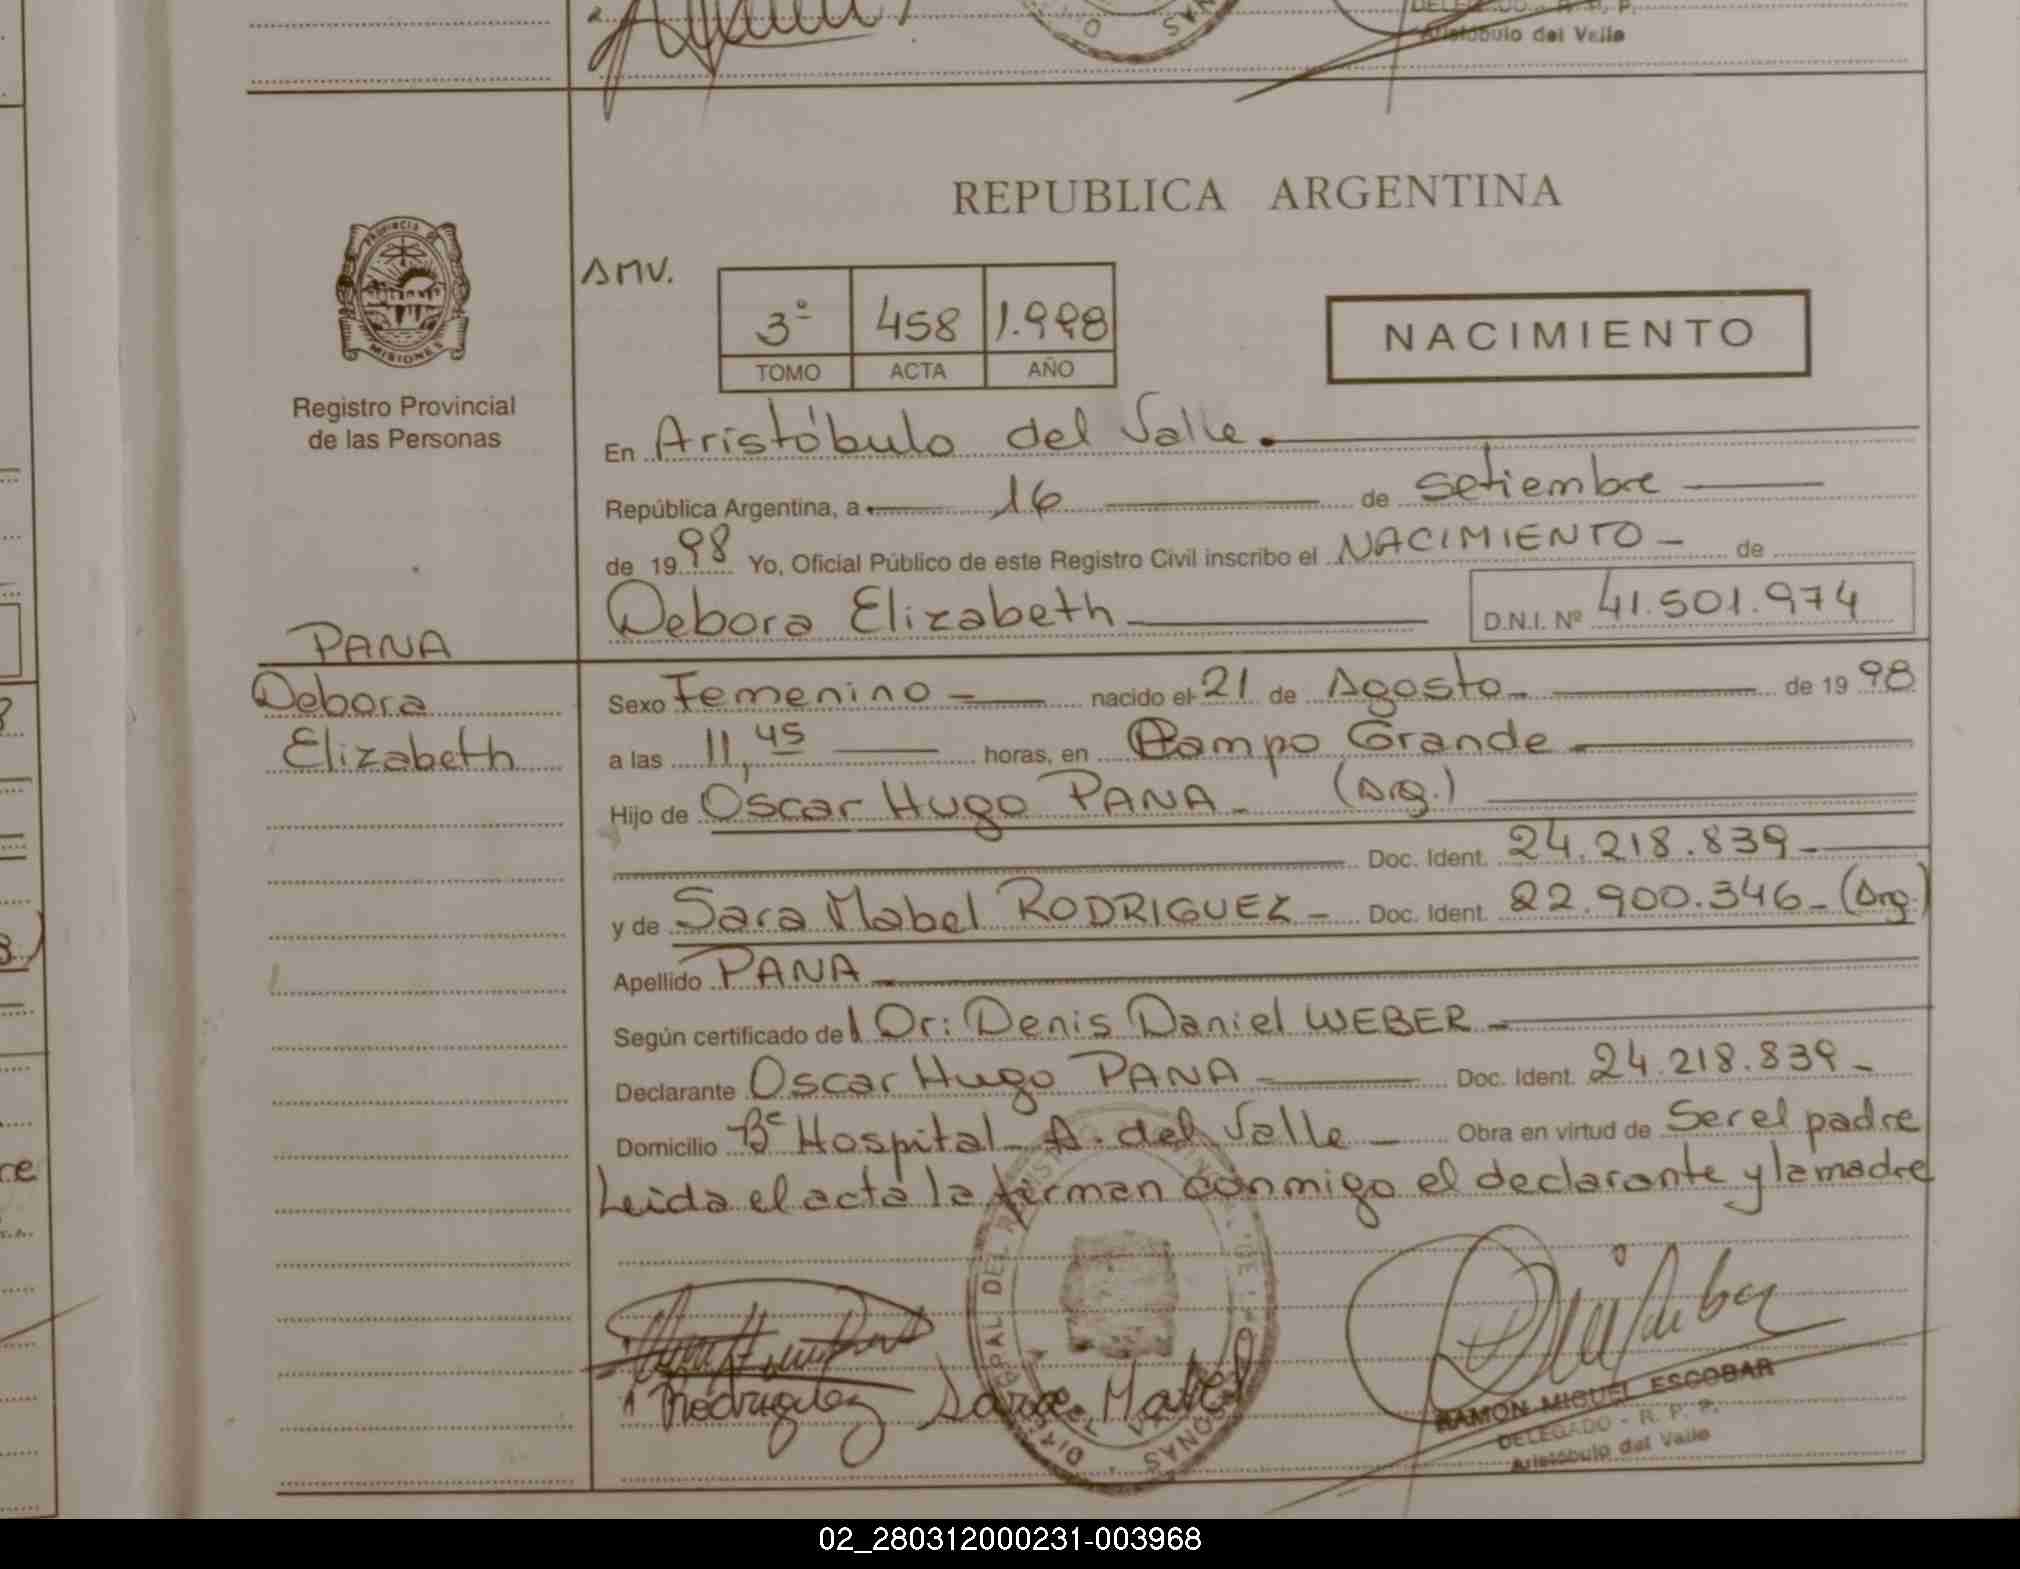 DELEGADO - R. P. P.
Aristóbulo del Valle
REPUBLICA ARGENTINA
PROVINCIA DE
MISIONES
Registro Provincial
de las Personas
AMV.
3º 458 1.998
TOMO ACTA AÑO
NACIMIENTO
En Aristóbulo del Valle.
República Argentina, a 16 de setiembre
de 1998 Yo, Oficial Público de este Registro Civil inscribo el NACIMIENTO - de
Debora Elizabeth D.N.I. Nº 41.501.974
PANA
Debora
Elizabeth
Sexo Femenino - nacido el 21 de Agosto - de 1998
a las 11,45 horas, en Campo Grande -
Hijo de Oscar Hugo PANA - (Arg.)
Doc. Ident. 24.218.839 -
y de Sara Mabel RODRIGUEZ - Doc. Ident. 22.900.346 - (Arg.)
Apellido PANA -
Según certificado del Dr: Denis Daniel WEBER -
Declarante Oscar Hugo PANA - Doc. Ident. 24.218.839 -
Domicilio Bº Hospital - A. del Valle - Obra en virtud de Ser el padre
Leida el acta la firman conmigo el declarante y la madre
Rodriguez Sara Mabel
RAMON MIGUEL ESCOBAR
DELEGADO - R. P. P.
Aristóbulo del Valle
02_280312000231-003968